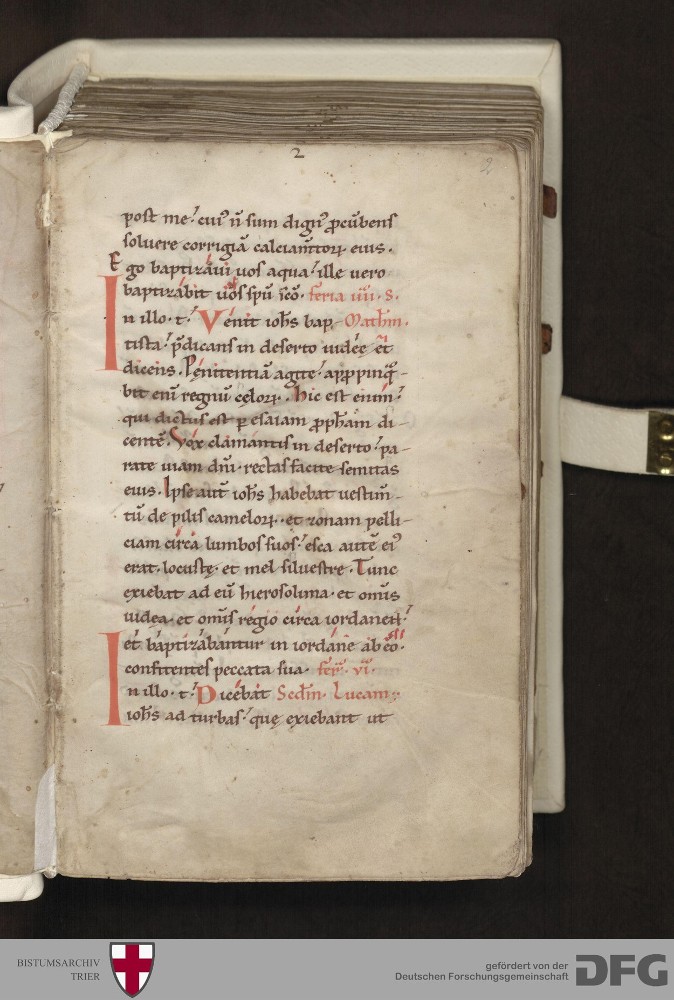 2
2
post me? cui᷒ n̄ sum dign᷒ ꝓcūbens
soluere corrigiā calciam̄torꝝ eius.
Ego baptizaui uos aqua? ille uero
baptizabit uos spū sc̄o. feria iiii. S.
In illo. t̄? Venit ioh̄s bap- Math̄m.
tista? p̄dicans in deserto iudęe et
dicens. Penitentiā agite? appropinq̄-
bit enī regnū celorꝝ. hic est enim?
qui dictus est ꝑ esaiam ꝓph̄am di-
centē. Vox clamantis in deserto? pa-
rate uiam dn̄i. rectas facite semitas
eius. Ipse aut̄ ioh̄s habebat uestim̄-
tū de pilis camelorꝝ. et zonam pelli-
ciam circa lumbos suos? esca autē ei᷒
erat. locustę. et mel siluestre. Tunc
exiebat ad eū hierosolima. et om̄is
iudea. et om̄is regio circa iordanen?
et baptizabantur in iordane ab eo.
confitentes peccata sua. fer̄. vi.
In illo. t̄? Dicebat Secd̄m. Lucam.
ioh̄s ad turbas? quę exiebant ut
BISTUMSARCHIV
TRIER
gefördert von der
Deutschen Forschungsgemeinschaft
DFG